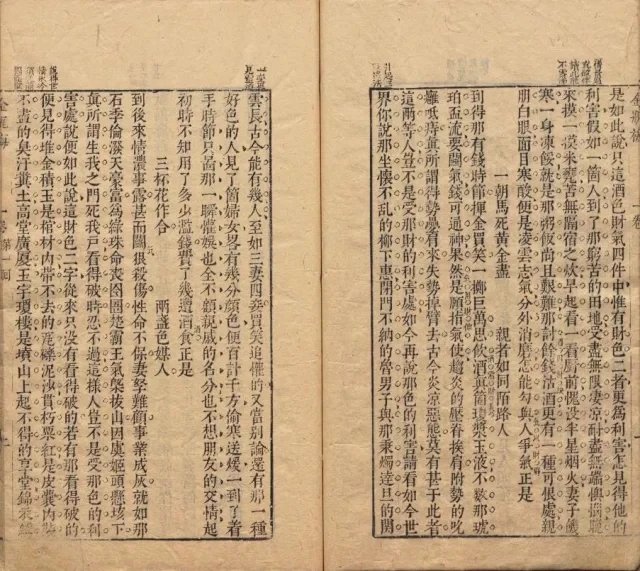 是如此說只這酒色財氣四件中惟有財色二者更爲利害怎見得他的
利害假如一箇人到了那窮苦的田地受盡無限凄凉耐盡無端懊惱晚
來摸一摸米甕苦無隔宿之炊早起看一看厨前愧没半星烟火妻子饑
寒一身凍餒就是那粥飯尚且艱難那討餘錢沽酒更有一種可恨處親
朋白眼面目寒酸便是凌雲志氣分外消磨怎能勾與人爭氣正是
一朝馬死黃金盡　親者如同陌路人
到得那有錢時節揮金買笑一擲巨萬思飲酒眞箇瓊漿玉液不數那琥
珀盃流要鬬氣錢可通神果然是頤指氣使趨炎的壓脊挨肩附勢的吮
癰舐痔眞所謂得勢叠肩來失勢掉臂去古今炎凉惡態莫有甚于此者
這兩等人豈不是受那財的利害處如今再說那色的利害請看如今世
界你說那坐懷不亂的柳下惠閉門不納的魯男子與那秉燭達旦的関
雲長古今能有幾人至如三妻四妾買笑追懽的又當别論還有那一種
好色的人見了箇婦女畧有幾分顔色便百計千方偷寒送煖一到了着
手時節只圖那一瞬懽娯也全不顧親戚的名分也不想朋友的交情起
初時不知用了多少濫錢費了幾遭酒食正是
三杯花作合　兩盞色媒人
到後來情濃事露甚而鬬狠殺傷性命不保妻孥難顧事業成灰就如那
石季倫潑天豪富爲綠珠命喪囹圄楚霸王氣槩拔山因虞姬頭懸垓下
眞所謂生我之門死我戶看得破時忍不過這樣人豈不是受那色的利
害處說便如此說這財色二字從來只没有看得破的若有那看得破的
便見得堆金積玉是棺材内帶不去的瓦礫泥沙貫朽粟紅是皮囊内裝
不盡的臭汙糞土高堂廣厦玉宇瓊樓是墳山上起不得的享堂錦衣
金瓶梅　一卷　第一回